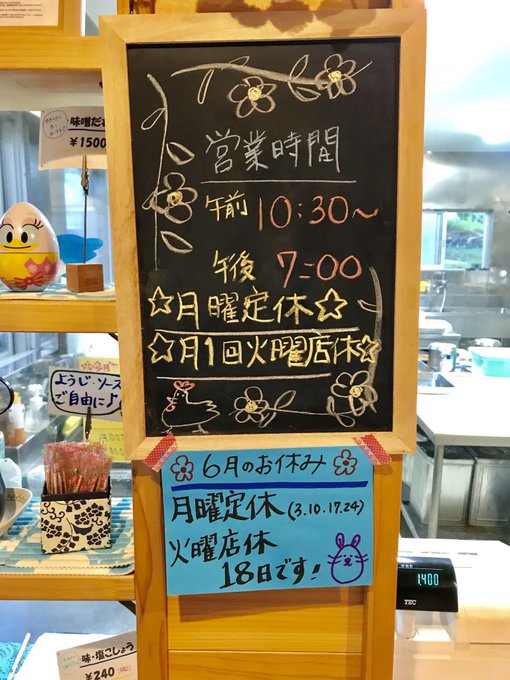 味噌だ
¥1500
営業時間
午前 10:30〜
午後 7:00
☆月曜定休☆
☆月1回火曜店休☆
ようじ・ソース
ご自由に♪
6月のお休み
月曜定休(3.10.17.24)
火曜店休
18日です!
1,400
TEC
味・塩こしょう
¥240